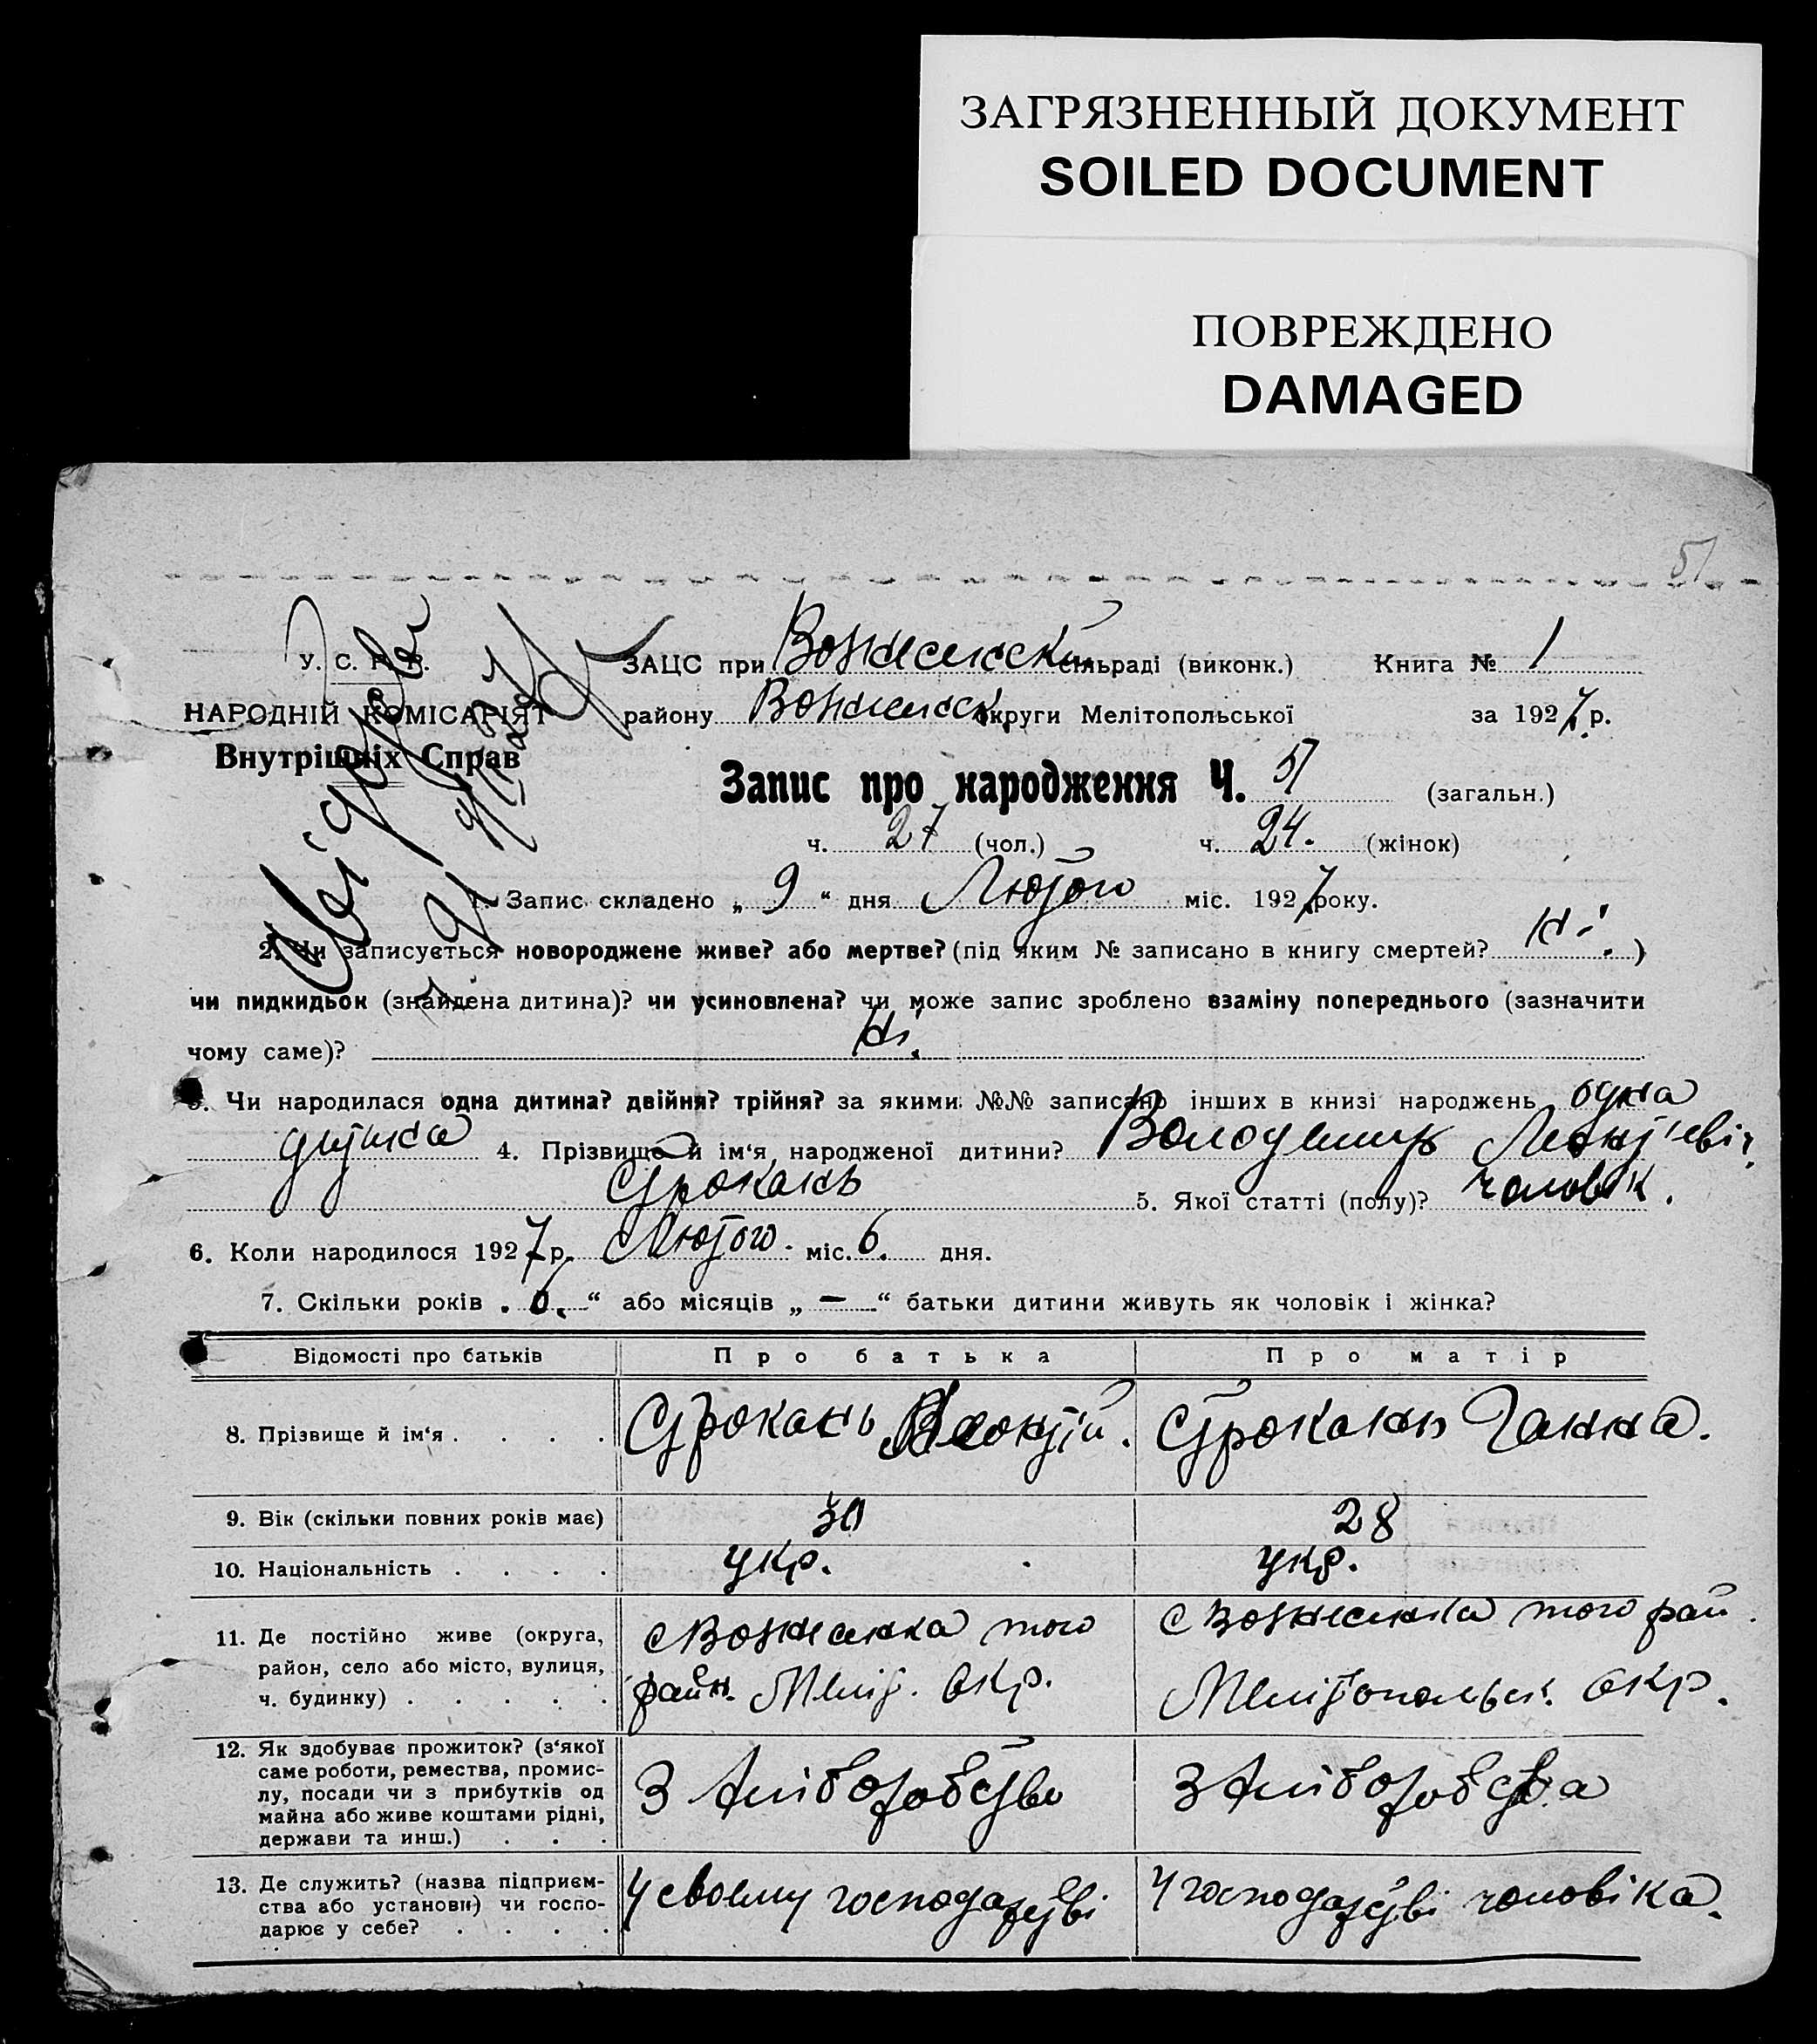 ЗАГРЯЗНЕННЫЙ ДОКУМЕНТ
SOILED DOCUMENT
ПОВРЕЖДЕНО
DAMAGED
51
У. С. Р. Р.
НАРОДНІЙ КОМІСАРІЯТ
Внутрішніх Справ
ЗАЦС при Вознесенській сільраді (виконк.) Книга № 1
району Вознесенск. округи Мелітопольської за 1927 р.
Запис про народження Ч. 51 (загальн.)
ч. 27 (чол.) ч. 24. (жінок)
1. Запис складено „ 9 “ дня Лютого міс. 1927 року.
2. Чи записується новороджене живе? або мертве? (під яким № записано в книгу смертей? Ні. )
чи пидкидьок (знайдена дитина)? чи усиновлена? чи може запис зроблено взаміну попереднього (зазначити
чому саме)? Ні.
3. Чи народилася одна дитина? двійня? трійня? за якими №№ записано інших в книзі народжень одна
дитина 4. Прізвище й ім‘я народженої дитини? Володимир Леонтіевіч
Строкань 5. Якої статті (полу)? чоловік.
6. Коли народилося 1927 р. Лютого міс. 6. дня.
7. Скільки років „ 6. “ або місяців „ — “ батьки дитини живуть як чоловік і жінка?
Відомості про батьків Про батька Про матір
8. Прізвище й ім‘я . . . . Строкань Леонтій. Строкань Ганна.
9. Вік (скільки повних років має) 30 28
10. Національність . . . . укр. укр.
11. Де постійно живе (округа,
район, село або місто, вулиця,
ч. будинку) . . . . .
с Вознесенка того
райн. Меліт. Окр.
с Вознесенка того рай.
Мелітопольск. Окр.
12. Як здобуває прожиток? (з‘якої
саме роботи, ремества, промис-
лу, посади чи з прибутків од
майна або живе коштами рідні,
держави та инш.) . . .
З хліборобство
З хліборобства
13. Де служить? (назва підприєм-
ства або установи) чи госпо-
дарює у себе? . . . .
У своему господарстві
У господарстві чоловіка.